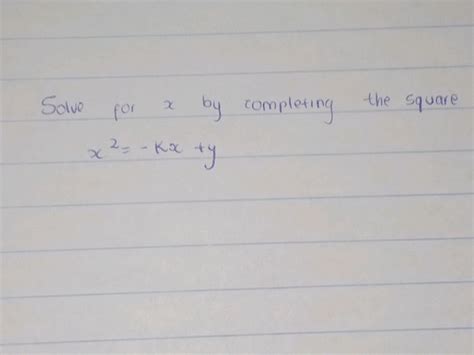 Solve for x by completing the square
x² = -Kx + y